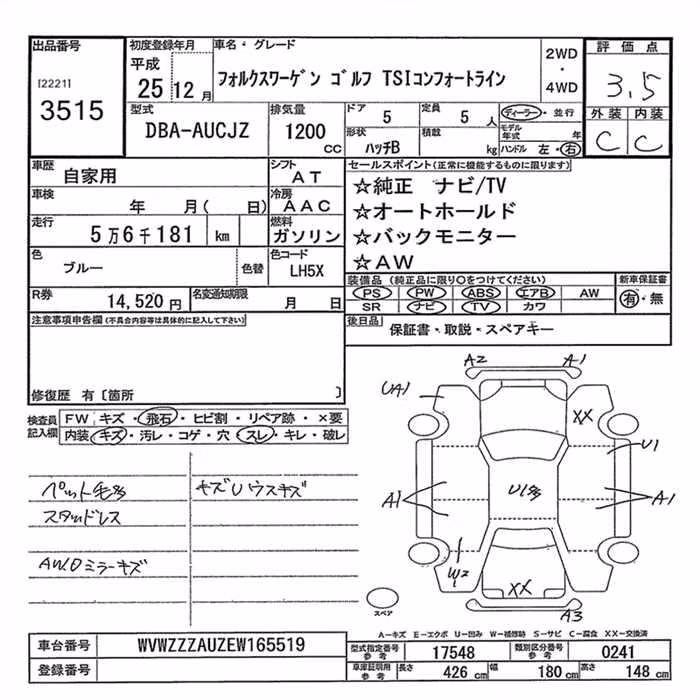 出品番号 初度登録年月 車名・グレード 2WD・4WD 評価点
[2221] 3515
平成25 12月
フォルクスワーゲン ゴルフ TSIコンフォートライン
3.5
外装 内装
C C
型式 DBA-AUCJZ 排気量 1200 CC
ドア 5 定員 5 人 ディーラー・並行
形状 ハッチB 積載 kg モデル年式 年
ハンドル 左・右
車歴 自家用 シフト AT
車検 年 月( 日) 冷房 AAC
走行 5万6千181 km 燃料 ガソリン
色 ブルー 色替 色コード LH5X
R券 14,520円 名変通知期限 月 日
セールスポイント(正常に機能するものに限ります)
☆純正 ナビ/TV
☆オートホールド
☆バックモニター
☆AW
装備品(純正品に限り○をつけてください) 新車保証書
PS PW ABS エアB AW 有・無
SR ナビ TV カワ
後日品 保証書・取説・スペアキー
注意事項申告欄(不具合内容等は具体的に記入して下さい)
修復歴 有〔箇所 〕
検査員記入欄 FW キズ・飛石・ヒビ割・リペア跡・×要
内装 キズ・汚レ・コゲ・穴・スレ・キレ・破レ
ペット毛多 キズUウスキズ
スタッドレス
AW.Oミラーキズ
A2 A1
UA1 XX
U1
A1 U1多 A1
W2 XX
A3
スペア
A−キズ E−エクボ U−凹み W−補修跡 S−サビ C−腐食 XX−交換済
車台番号 WVWZZZAUZEW165519
登録番号
型式指定番号 参考 17548 類別区分番号 参考 0241
車庫証明用 参考 長さ 426 cm 幅 180 cm 高さ 148 cm